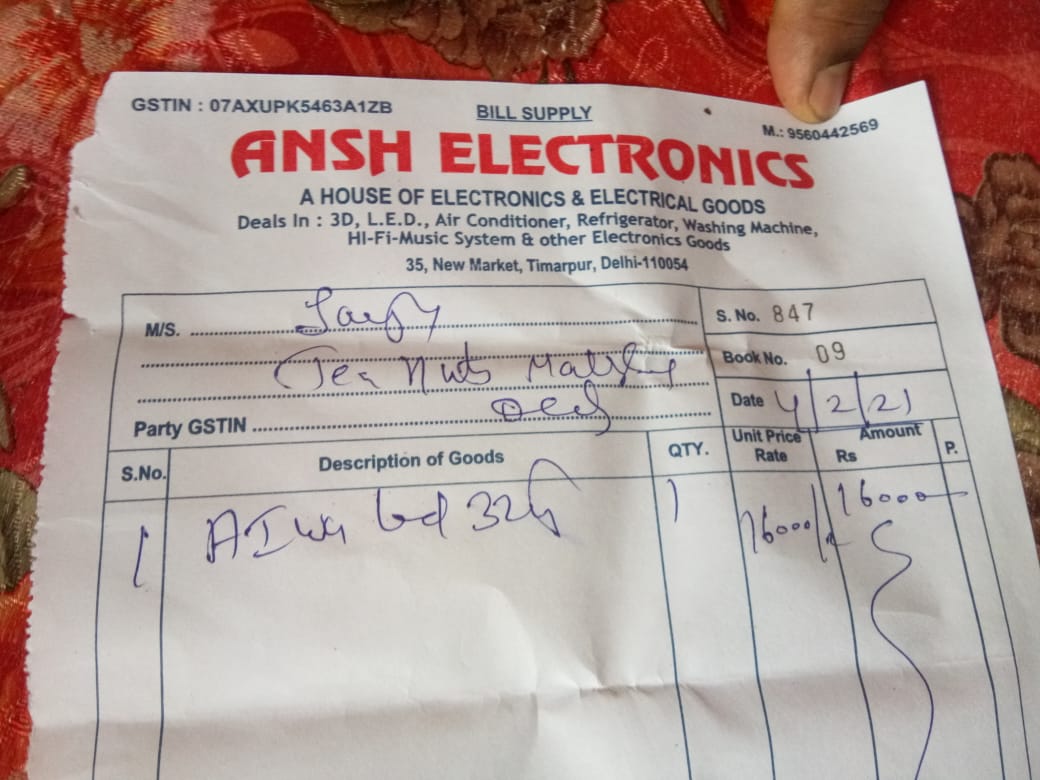 GSTIN : 07AXUPK5463A1ZB
BILL SUPPLY
M.: 9560442569
ANSH ELECTRONICS
A HOUSE OF ELECTRONICS & ELECTRICAL GOODS
Deals In : 3D, L.E.D., Air Conditioner, Refrigerator, Washing Machine,
HI-Fi-Music System & other Electronics Goods
35, New Market, Timarpur, Delhi-110054
M/S.
S. No. 847
Book No. 09
Date 4/2/21
Party GSTIN
S.No. Description of Goods QTY. Unit Price Rate Amount Rs P.
1 AIwa led 32 1 16000/- 16000